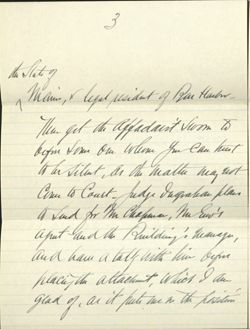 3
the State of
Maine, & legal resident of Bar Harbor.
Then get the Affadavit Sworn to
before some one whom you can trust
to be silent, as the matter may not
come to Court. Judge Ingraham plans
to send for Mr Chapman, Mr
agent and the Building's manager,
and have a talk with him before
placing the attachment, which I am
glad of, as it puts me in the position